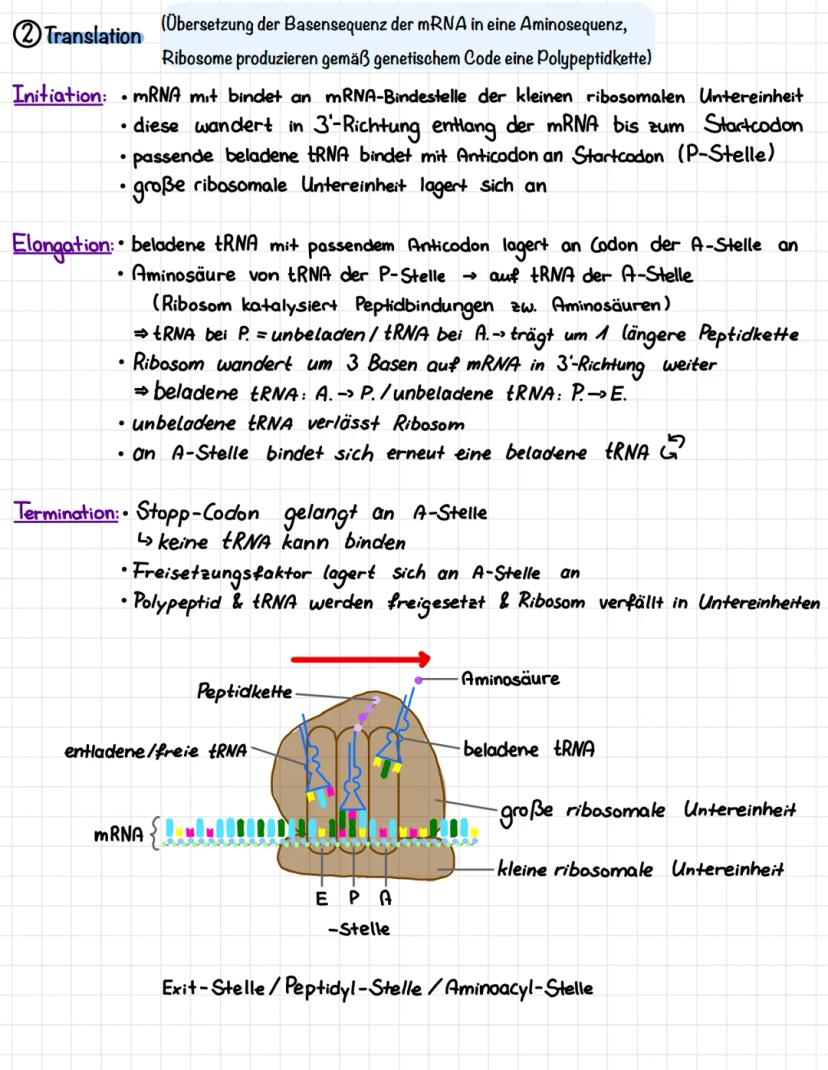 ② Translation (Übersetzung der Basensequenz der mRNA in eine Aminosequenz,
Ribosome produzieren gemäß genetischem Code eine Polypeptidkette)
Initiation: • mRNA mit bindet an mRNA-Bindestelle der kleinen ribosomalen Untereinheit
• diese wandert in 3'-Richtung entlang der mRNA bis zum Startcodon
• passende beladene tRNA bindet mit Anticodon an Startcodon (P-Stelle)
• große ribosomale Untereinheit lagert sich an
Elongation: • beladene tRNA mit passendem Anticodon lagert an Codon der A-Stelle an
• Aminosäure von tRNA der P-Stelle → auf tRNA der A-Stelle
(Ribosom katalysiert Peptidbindungen zw. Aminosäuren)
⇒ tRNA bei P. = unbeladen / tRNA bei A. → trägt um 1 längere Peptidkette
• Ribosom wandert um 3 Basen auf mRNA in 3'-Richtung weiter
⇒ beladene tRNA: A. → P. / unbeladene tRNA: P. → E.
• unbeladene tRNA verlässt Ribosom
• an A-Stelle bindet sich erneut eine beladene tRNA
Termination: • Stopp-Codon gelangt an A-Stelle
↳ keine tRNA kann binden
• Freisetzungsfaktor lagert sich an A-Stelle an
• Polypeptid & tRNA werden freigesetzt & Ribosom verfällt in Untereinheiten
Aminosäure
Peptidkette
entladene/freie tRNA
beladene tRNA
große ribosomale Untereinheit
mRNA {
kleine ribosomale Untereinheit
E P A
-Stelle
Exit-Stelle / Peptidyl-Stelle / Aminoacyl-Stelle